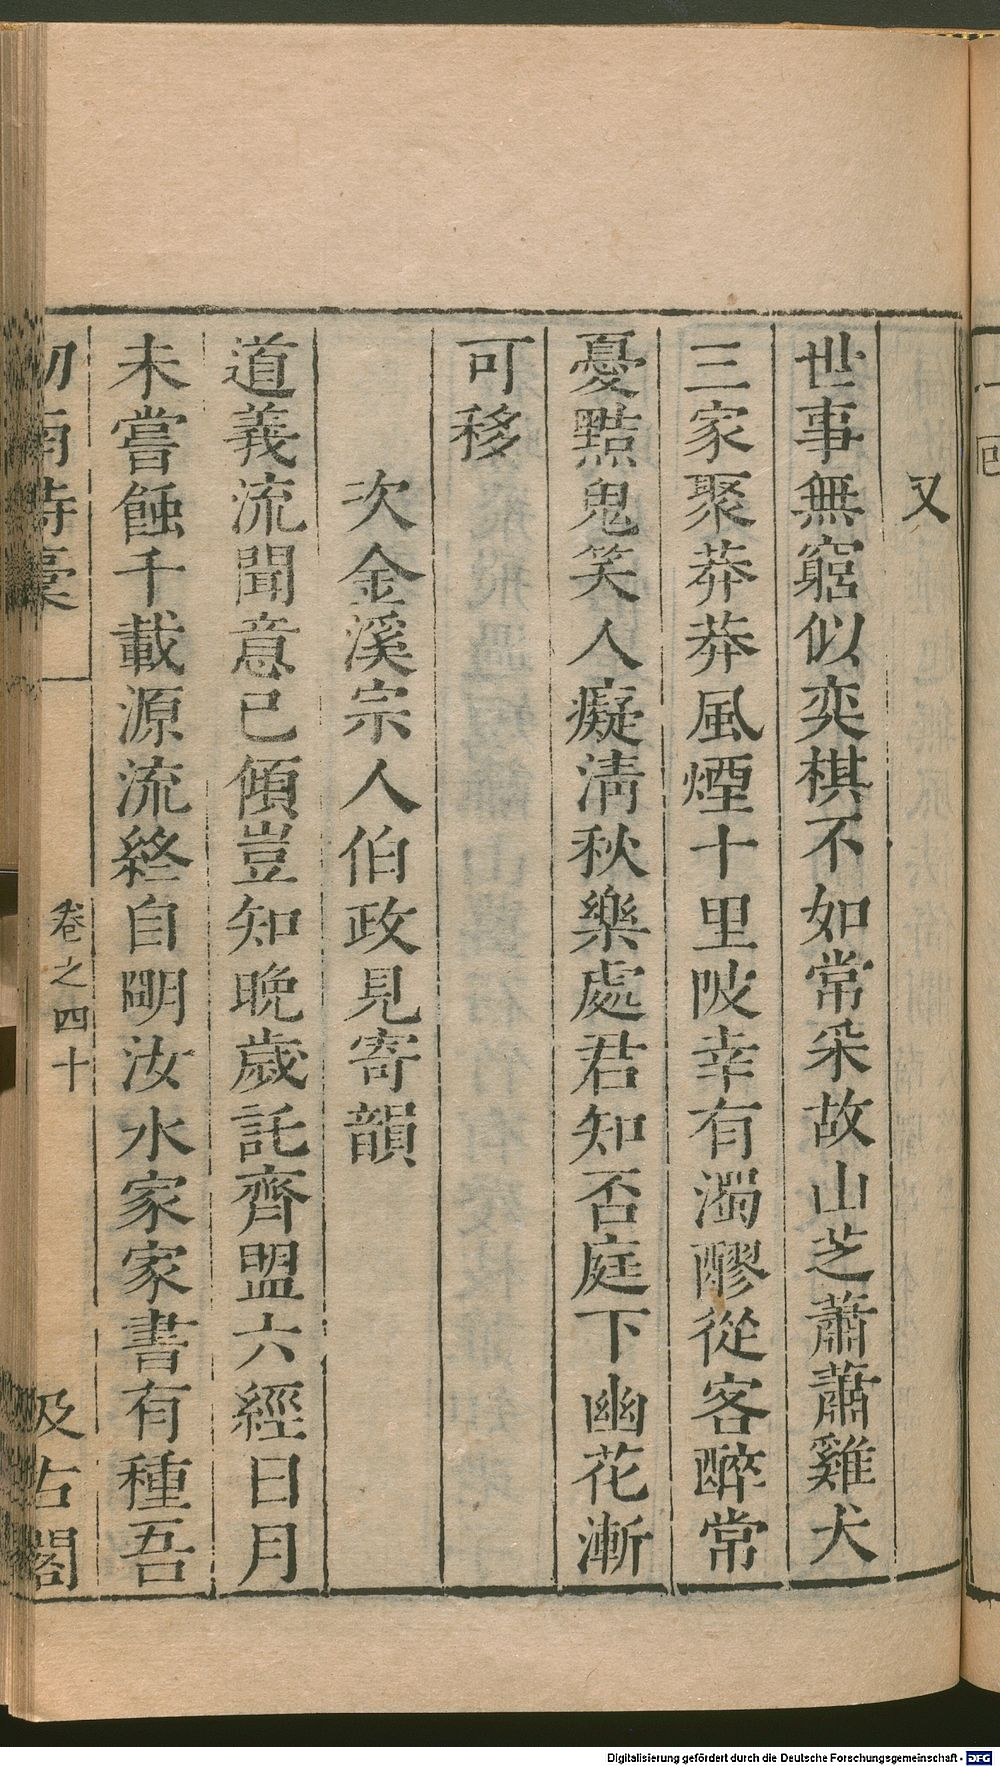 又
世事無窮似奕棋不如常采故山芝蕭蕭雞犬
三家聚莽莽風煙十里陂幸有濁醪從客醉常
憂黠鬼笑人癡淸秋樂處君知否庭下幽花漸
可移
次金溪宗人伯政見寄韻
道義流聞意已傾豈知晚歲託齊盟六經日月
未嘗蝕千載源流終自明汝水家家書有種吾
劒南詩稾
卷之四十
汲古閣
Digitalisierung gefördert durch die Deutsche Forschungsgemeinschaft - DFG